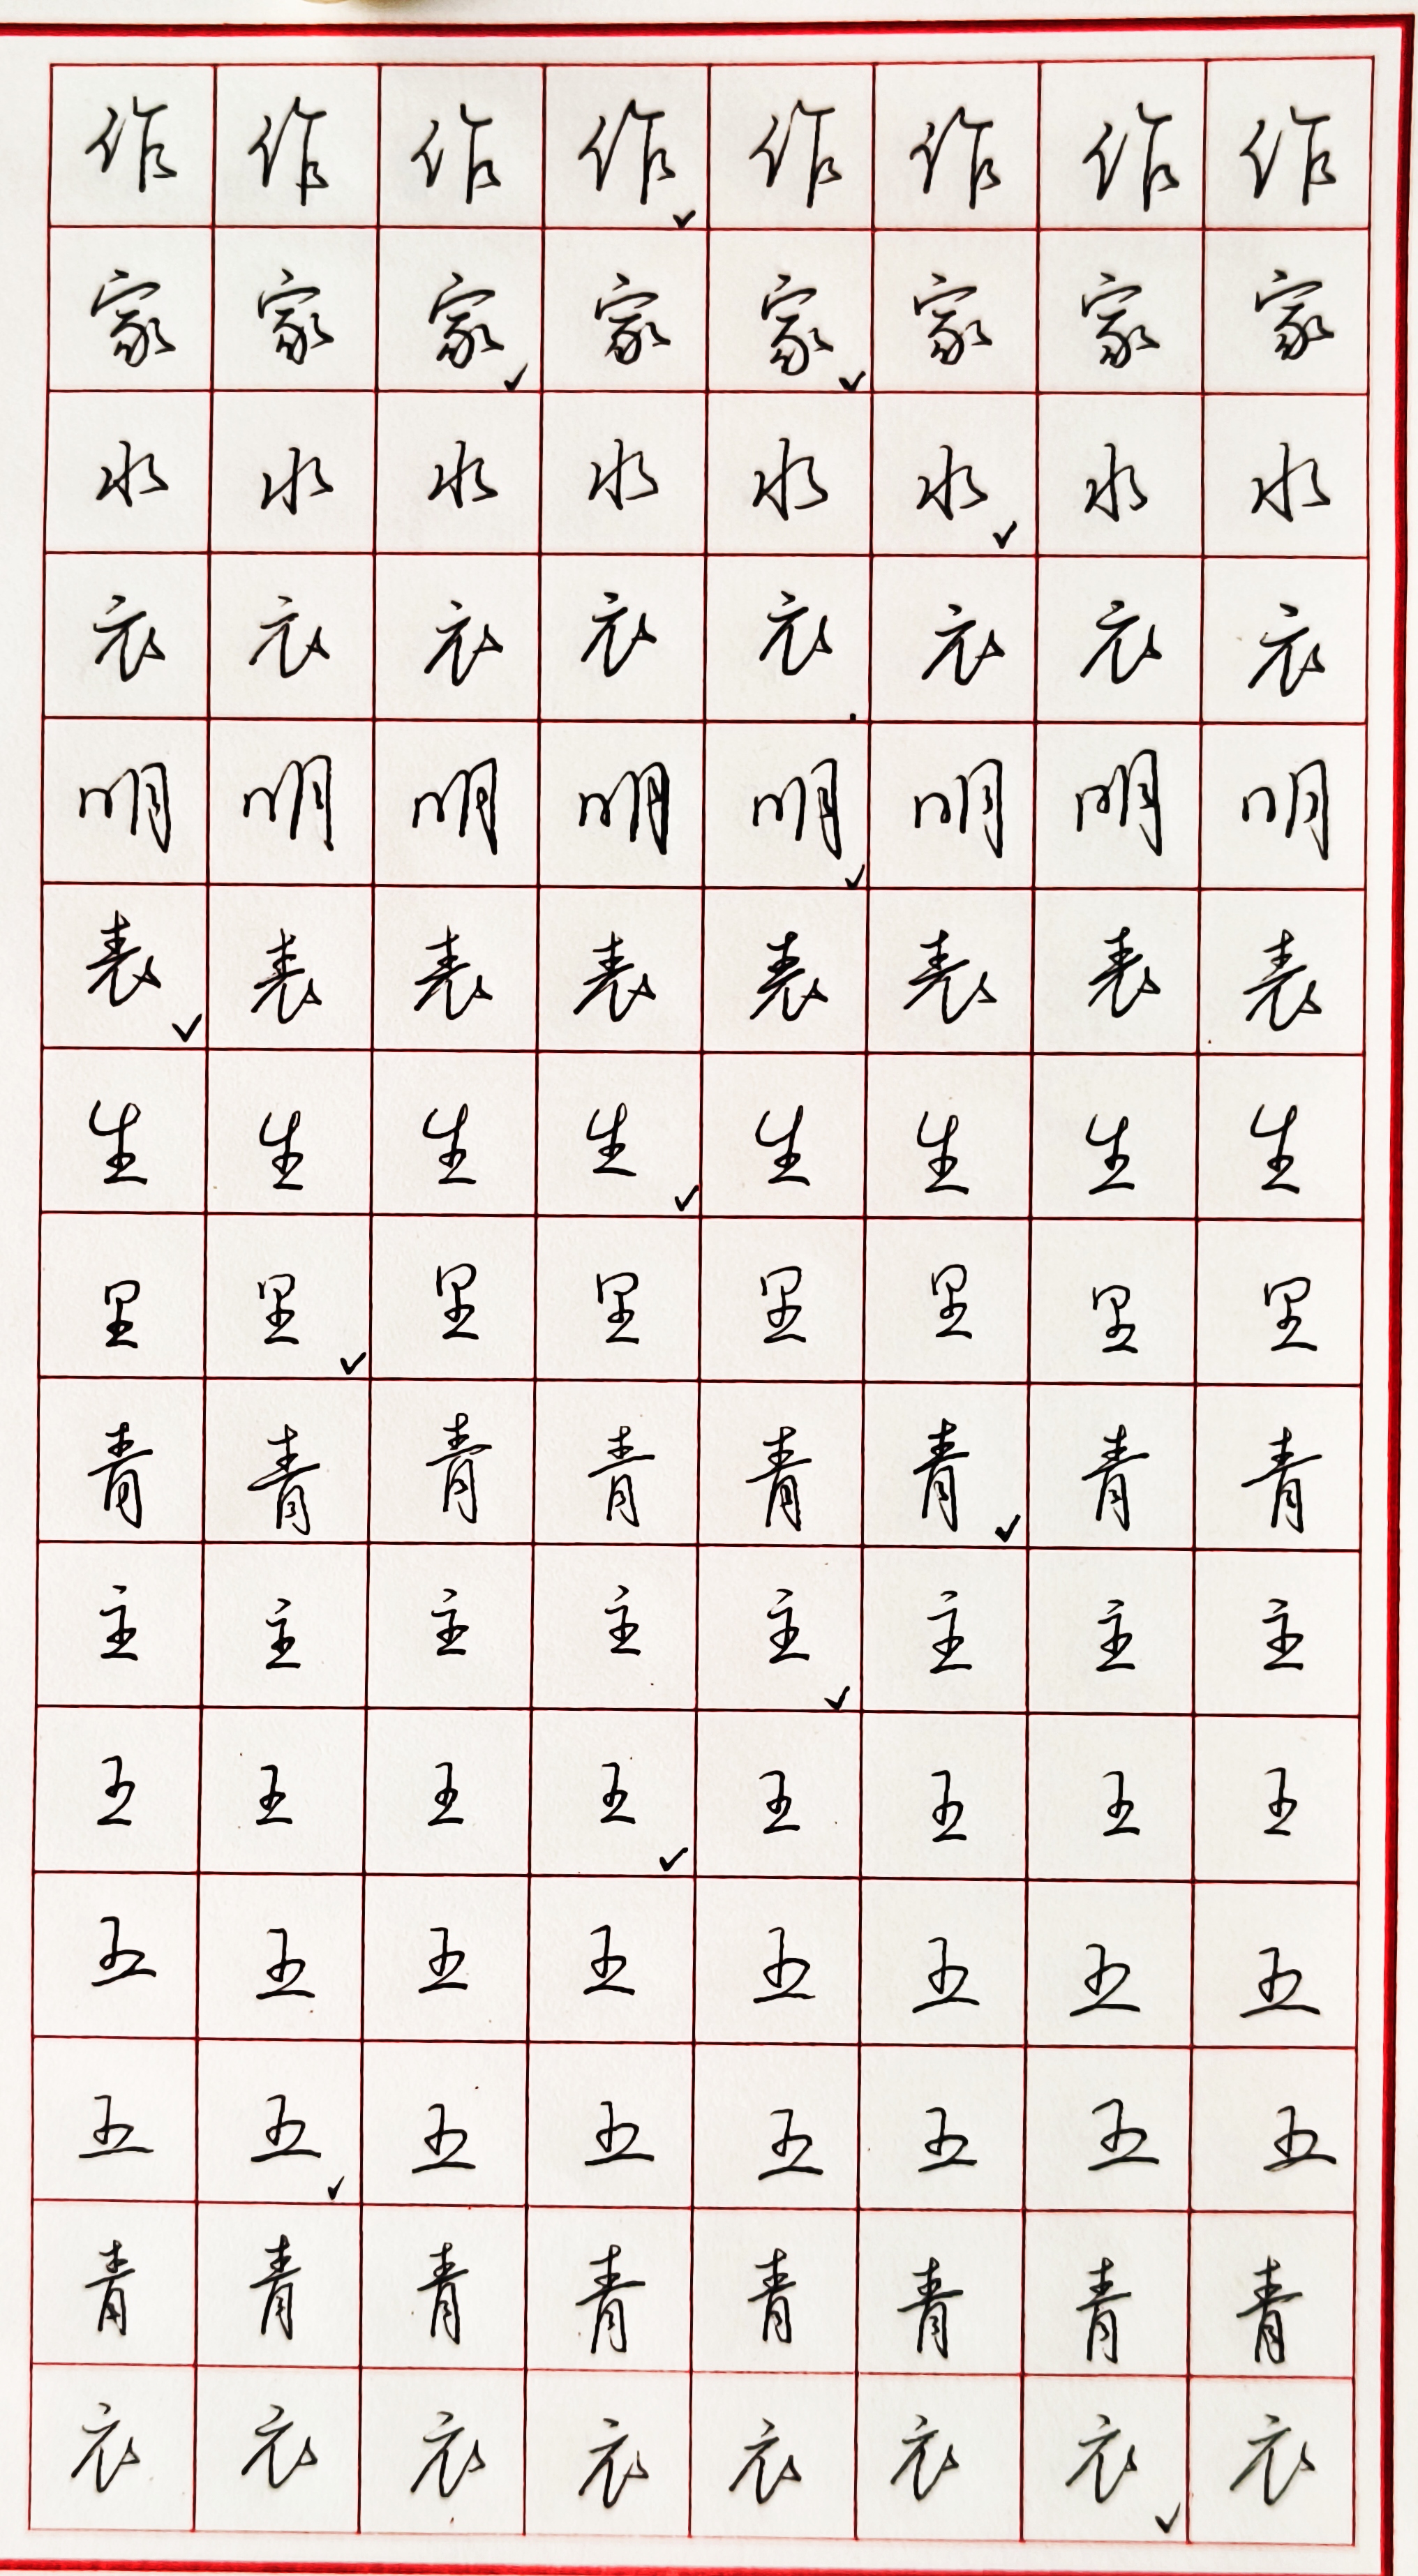 作作作作作作作作
家家家家家家家家
水水水水水水水水
衣衣衣衣衣衣衣衣
明明明明明明明明
表表表表表表表表
生生生生生生生生
里里里里里里里里
青青青青青青青青
主主主主主主主主
王王王王王王王王
五五五五五五五五
五五五五五五五五
青青青青青青青青
衣衣衣衣衣衣衣衣